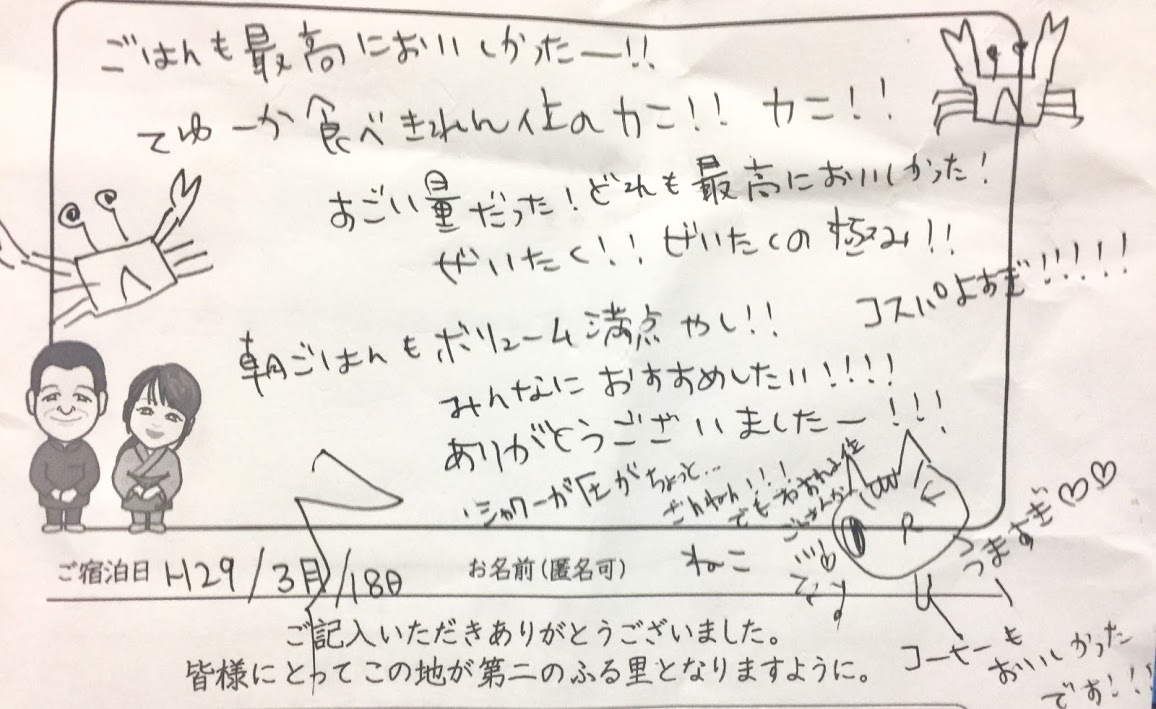 ごはんも最高においしかったー!!
てゆーか食べきれん位のカニ!! カニ!!
すごい量だった!どれも最高においしかった!
ぜいたく!! ぜいたくの極み!!
コスパよすぎ!!!!!
朝ごはんもボリューム満点やし!!
みんなにおすすめしたい!!!!
ありがとうございましたー!!!
シャワーが圧がちょっと…
ざんねん!!!
でもわすれる位
ごはんが
うますぎ♡♡
です
ご宿泊日 H29/3月/18日 お名前(匿名可) ねこ
コーヒーも
おいしかった
です!!!
ご記入いただきありがとうございました。
皆様にとってこの地が第二のふる里となりますように。